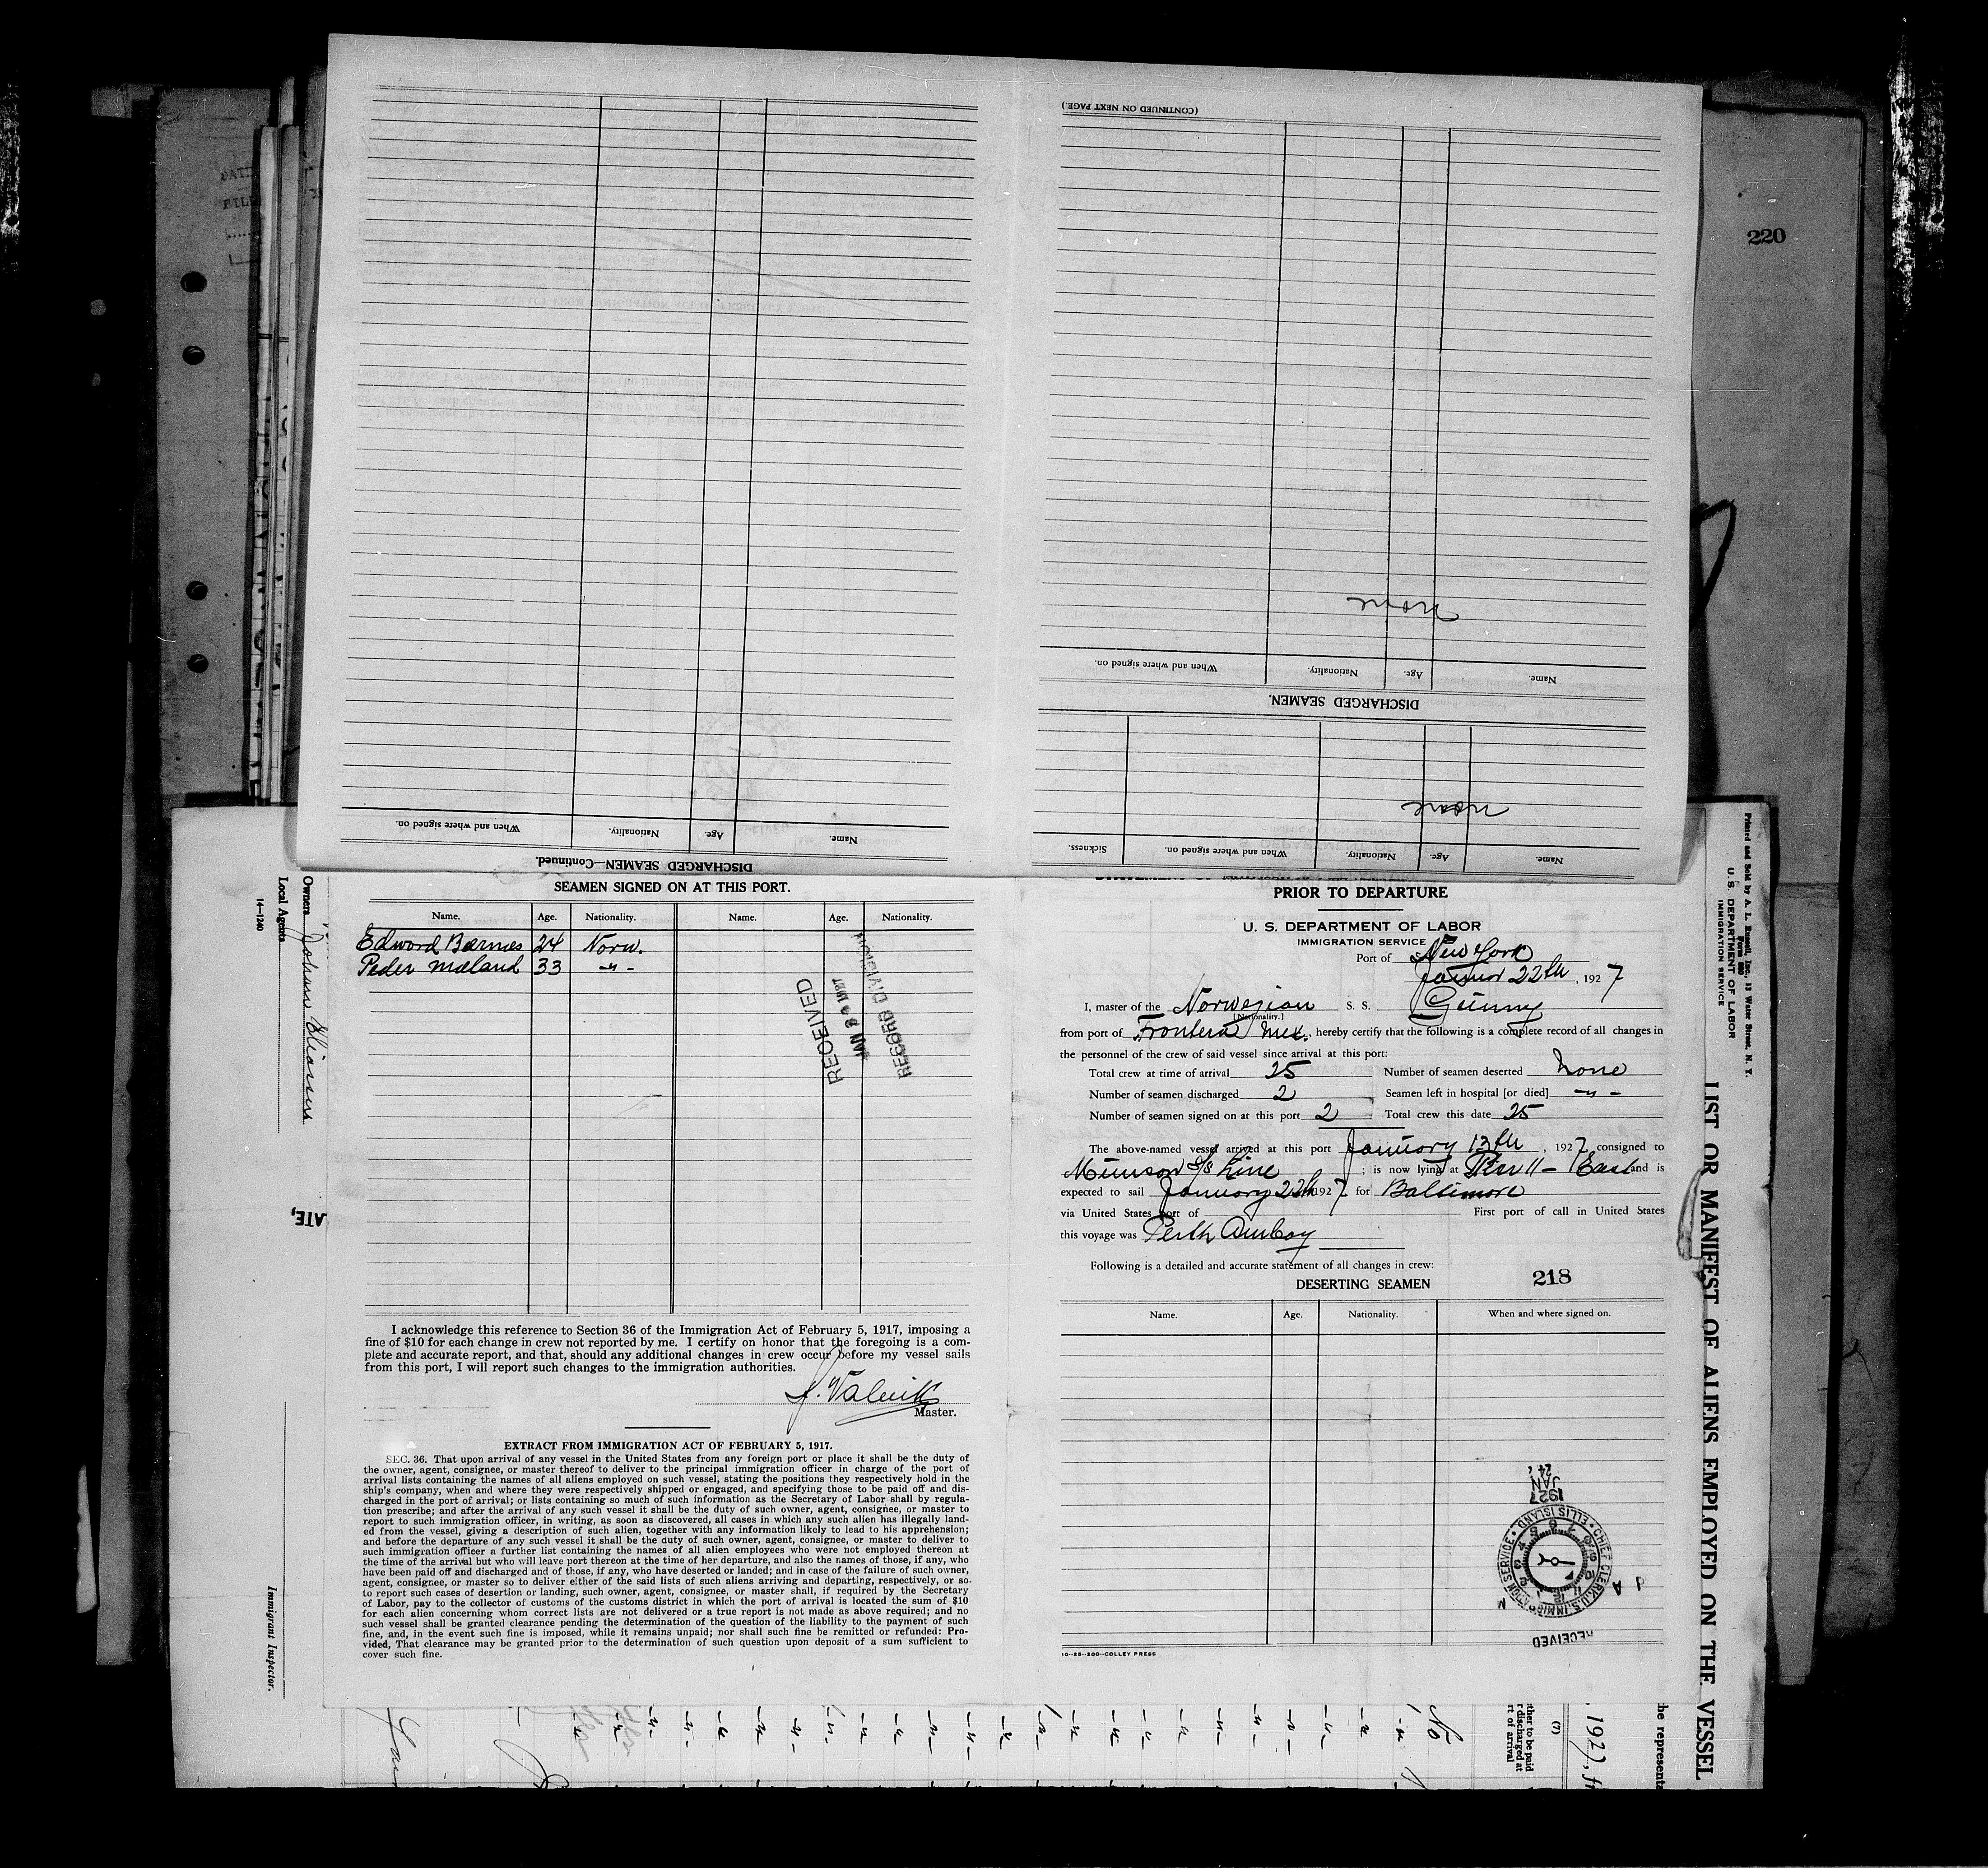 (CONTINUED ON NEXT PAGE.)
none
Name.
Age.
Nationality.
When and where signed on.
DISCHARGED SEAMEN.
none
Name.
Age.
Nationality.
When and where signed on.
Sickness.
Name.
Age.
Nationality.
When and where signed on.
DISCHARGED SEAMEN—Continued.
220
SEAMEN SIGNED ON AT THIS PORT.
Name. Age. Nationality. Name. Age. Nationality.
Edward Barmes 24 Norw.
Peder Mæland 33 -"-
RECEIVED
RECORD DIVISION
I acknowledge this reference to Section 36 of the Immigration Act of February 5, 1917, imposing a
fine of $10 for each change in crew not reported by me. I certify on honor that the foregoing is a com-
plete and accurate report, and that, should any additional changes in crew occur before my vessel sails
from this port, I will report such changes to the immigration authorities.
Master.
EXTRACT FROM IMMIGRATION ACT OF FEBRUARY 5, 1917.
SEC. 36. That upon arrival of any vessel in the United States from any foreign port or place it shall be the duty of
the owner, agent, consignee, or master thereof to deliver to the principal immigration officer in charge of the port of
arrival lists containing the names of all aliens employed on such vessel, stating the positions they respectively hold in the
ship's company, when and where they were respectively shipped or engaged, and specifying those to be paid off and dis-
charged in the port of arrival; or lists containing so much of such information as the Secretary of Labor shall by regula-
tion prescribe; and after the arrival of any such vessel it shall be the duty of such owner, agent, consignee, or master to
report to such immigration officer, in writing, as soon as discovered, all cases in which any such alien has illegally land-
ed from the vessel, giving a description of such alien, together with any information likely to lead to his apprehension;
and before the departure of any such vessel it shall be the duty of such owner, agent, consignee, or master to deliver to
such immigration officer a further list containing the names of all alien employees who were not employed thereon at
the time of the arrival but who will leave port thereon at the time of her departure, and also the names of those, if any, who
have been paid off and discharged and of those, if any, who have deserted or landed; and in case of the failure of such owner,
agent, consignee, or master so to deliver either of the said lists of such aliens arriving and departing, respectively, or so
to report such cases of desertion or landing, such owner, agent, consignee, or master shall, if required by the Secretary
of Labor, pay to the collector of customs of the customs district in which the port of arrival is located the sum of $10
for each alien concerning whom correct lists are not delivered or a true report is not made as above required; and no
such vessel shall be granted clearance pending the determination of the question of the liability to the payment of such
fine, and, in the event such fine is imposed, while it remains unpaid; nor shall such fine be remitted or refunded: Pro-
vided, That clearance may be granted prior to the determination of such question upon deposit of a sum sufficient to
cover such fine.
PRIOR TO DEPARTURE
U. S. DEPARTMENT OF LABOR
IMMIGRATION SERVICE
Port of New York
22th, 1927
I, master of the Norwegian S. S. Gunny
[Nationality.]
from port of Frontera Mex., hereby certify that the following is a complete record of all changes in
the personnel of the crew of said vessel since arrival at this port:
Total crew at time of arrival 25 Number of seamen deserted None
Number of seamen discharged 2 Seamen left in hospital [or died] -"-
Number of seamen signed on at this port 2 Total crew this date 25
The above-named vessel arrived at this port January 13th, 1927 consigned to
Munson S/S Line; is now lying at Pier 11 - East and is
expected to sail January 22th 1927 for Baltimore
via United States port of First port of call in United States
this voyage was Perth Amboy
Following is a detailed and accurate statement of all changes in crew:
DESERTING SEAMEN
218
Name. Age. Nationality. When and where signed on.
1927
JAN
24
CHIEF CLERK, U.S. IMMIGRATION SERVICE
ELLIS ISLAND
RECEIVED
10--25--200--COLLEY PRESS
Owners
Local Agents
14—1240
ATE,
Immigrant Inspector.
Printed and Sold by A. L. Russell, Inc., 13 Water Street, N. Y.
U. S. DEPARTMENT OF LABOR
IMMIGRATION SERVICE
LIST OR MANIFEST OF ALIENS EMPLOYED ON THE VESSEL
he representa
, 1927, fr
(7)
ther to be paid
r discharged at
rt of arrival
No